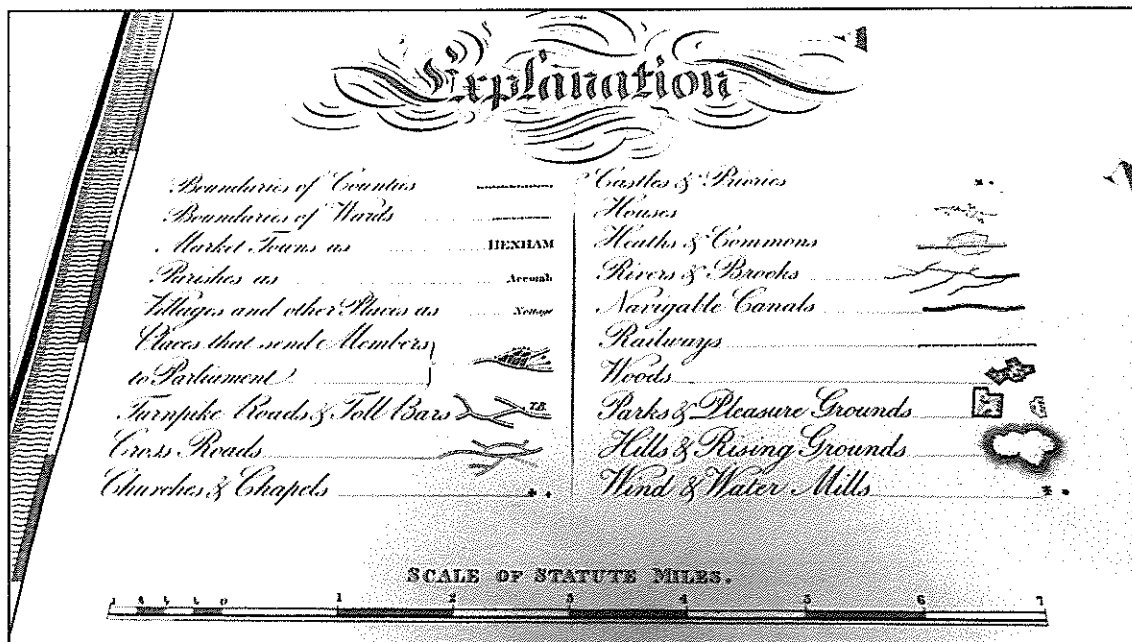 Explanation
Boundaries of Counties
Boundaries of Wards
Market Towns as HEXHAM
Parishes as
Villages and other Places as
Places that send Members
to Parliament
Turnpike Roads & Toll Bars T.B.
Cross Roads
Churches & Chapels
Castles & Priories
Houses
Heaths & Commons
Rivers & Brooks
Navigable Canals
Railways
Woods
Parks & Pleasure Grounds
Hills & Rising Grounds
Wind & Water Mills
SCALE OF STATUTE MILES.
0 1 2 3 4 5 6 7